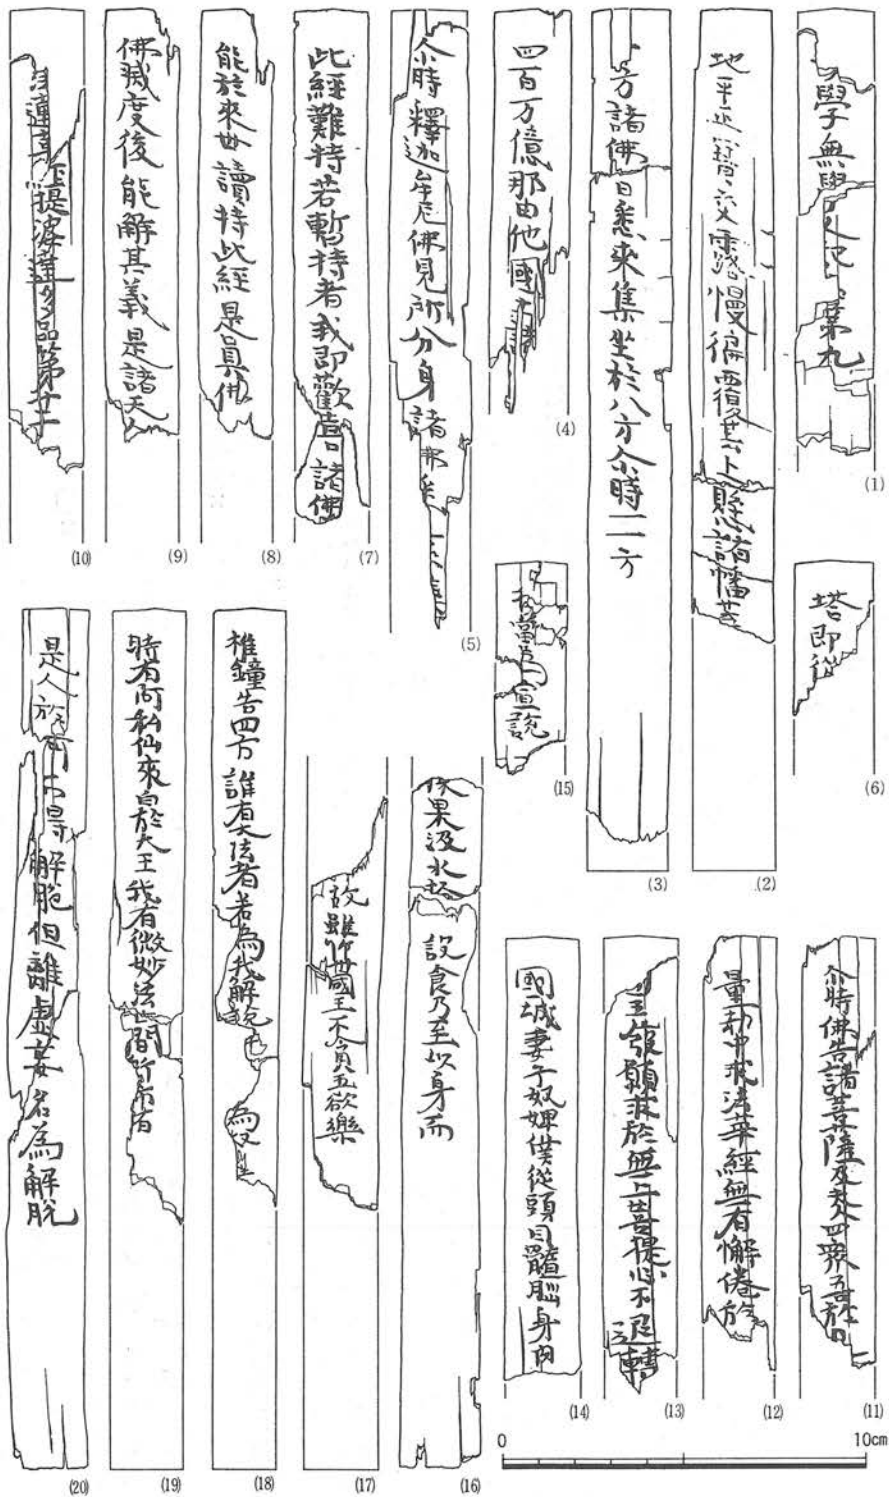 學無學人記 第九
(1)
地平正寶交露慢徧覆其上懸諸幡盖
(2)
方諸佛 日悉來集坐於八方尒時一一方
(3)
四百万億那由他國土諸
(4)
尒時釋迦牟尼佛見所分身諸佛
(5)
塔即從
(6)
此經難持若暫持者我即歡喜諸佛
(7)
能於來世讀持此經是真佛
(8)
佛滅度後能解其義是諸天人
(9)
法蓮華經提婆達多品第十二
(10)
尒時佛告諸菩薩及天人四衆吾於
(11)
量劫中求法華經無有懈倦於
(12)
王發願求於無上菩提心不退轉
(13)
國城妻子奴婢僕從頭目髓腦身肉
(14)
當為宣說
(15)
採果汲水拾 設食乃至以身而
(16)
故雖作世國王不貪五欲樂
(17)
椎鐘告四方誰有大法者若為我解說 為
(18)
時有阿私仙來白於大王我有微妙法世間所希有
(19)
是人於 不得解脫但離虛妄名為解脫
(20)
0 10cm